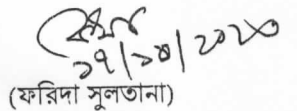 ১৭/১০/২০২৩
(ফরিদা সুলতানা)